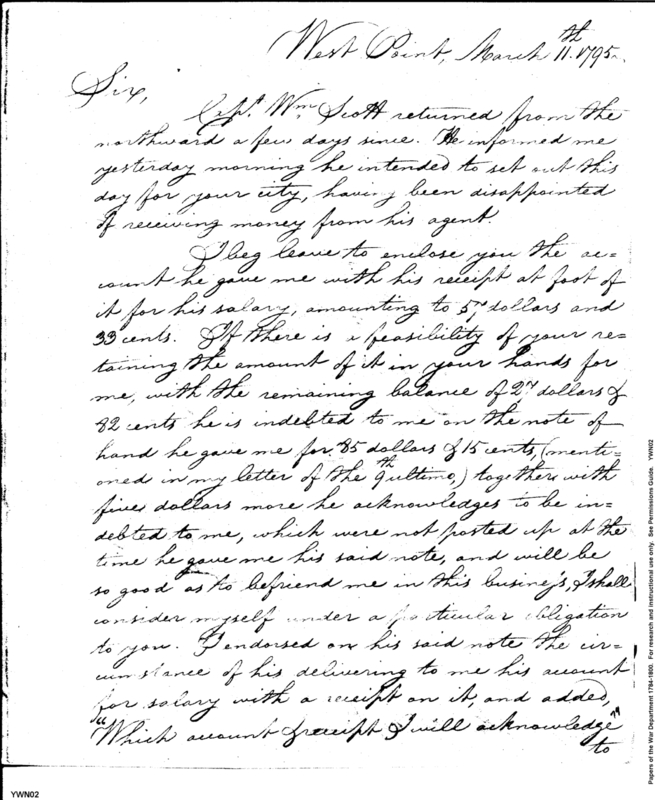 West Point, March 11.th 1795.
Sir,
Capt. Wm. Scott returned from the
northward a few days since. He informed me
yesterday morning he intended to set out this
day for your city, having been disappointed
of receiving money from his agent.
I beg leave to enclose you the ac=
count he gave me with his receipt at foot of
it for his salary, amounting to 57 dollars and
33 cents. If there is a feasibility of your re=
taining the amount of it in your hands for
me, with the remaining balance of 27 dollars &
82 cents he is indebted to me on the note of
hand he gave me for 85 dollars & 15 cents, (menti=
oned in my letter of the 9th ultimo,) together with
five dollars more he acknowledges to be in=
debted to me, which were not posted up at the
time he gave me his said note, and will be
so good as to befriend me in this business, I shall
consider myself under a particular obligation
to you. I endorsed on his said note the cir=
cumstance of his delivering to me his account
for salary with a receipt on it, and added,
"Which account & receipt I will acknowledge"
to
Papers of the War Department 1784-1800. For research and instructional use only. See Permissions Guide. YWN02
YWN02